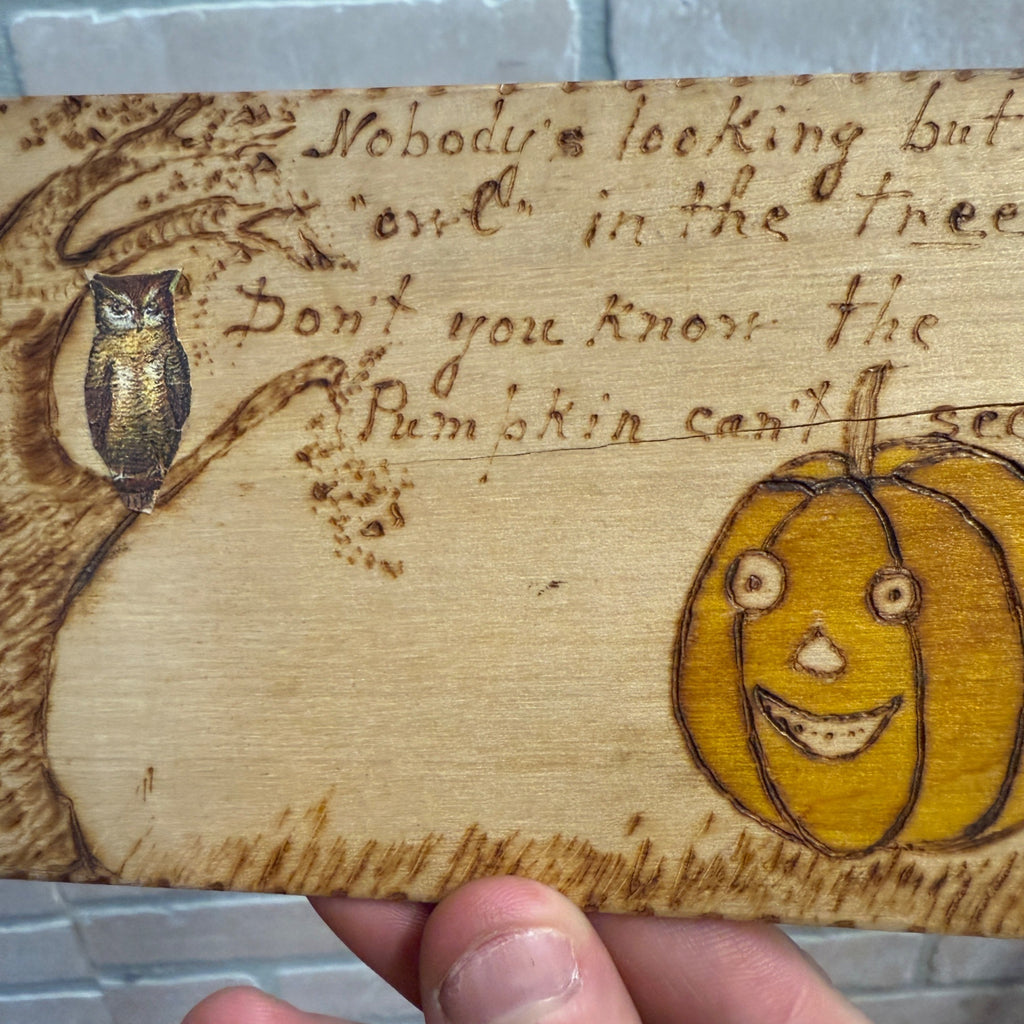 Nobody's looking but
"owl" in the tree
Don't you know the
Pumpkin can't see